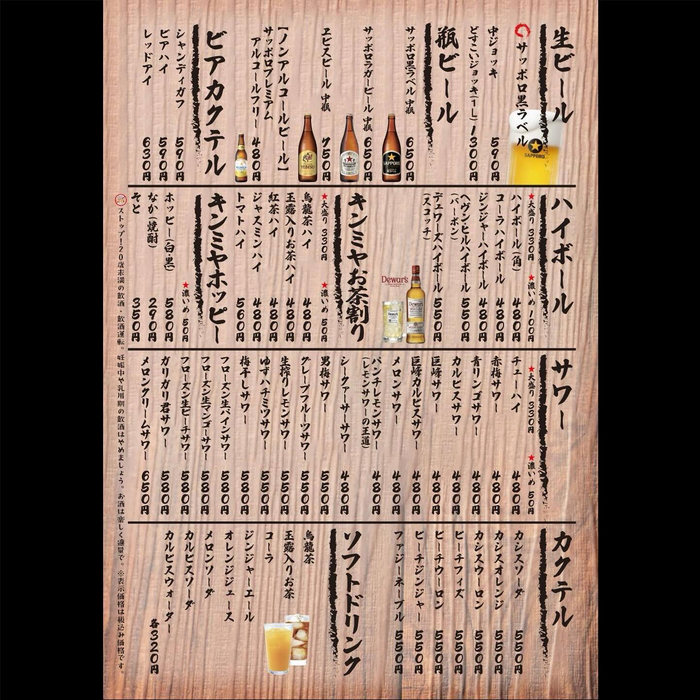 生ビール
サッポロ黒ラベル
中ジョッキ 590円
どすこいジョッキ(1L) 1300円
瓶ビール
サッポロ黒ラベル 中瓶 650円
サッポロラガービール 中瓶 650円
ヱビスビール 中瓶 750円
【ノンアルコールビール】
サッポロプレミアム
アルコールフリー 480円
ビアカクテル
シャンディガフ 590円
ビアハイ 590円
レッドアイ 630円
SAPPORO
ハイボール
★大盛り 330円 ★濃いめ 100円
ハイボール(角) 480円
コーラハイボール 480円
ジンジャーハイボール 480円
ヘヴンヒルハイボール 550円
(バーボン)
デュワーズハイボール 550円
(スコッチ)
Dewar's
キンミヤお茶割り
★大盛り 330円 ★濃いめ 50円
烏龍茶ハイ 480円
玉露入りお茶ハイ 480円
紅茶ハイ 480円
ジャスミンハイ 480円
トマトハイ 560円
キンミヤホッピー
★濃いめ 50円
ホッピー(白・黒) 580円
なか(焼酎) 290円
そと 350円
サワー
★大盛り 330円 ★濃いめ 50円
チューハイ 480円
赤梅サワー 480円
青リンゴサワー 480円
カルピスサワー 480円
巨峰サワー 480円
巨峰カルピスサワー 480円
メロンサワー 480円
パンチレモンサワー 480円
(レモンサワーの王道)
シークァーサーサワー 480円
男梅サワー 550円
グレープフルーツサワー 550円
生搾りレモンサワー 550円
ゆずハチミツサワー 550円
梅干しサワー 550円
フローズン生パインサワー 580円
フローズン生マンゴーサワー 580円
フローズン生ピーチサワー 580円
ガリガリ君サワー 580円
メロンクリームサワー 650円
カクテル
カシスソーダ 550円
カシスオレンジ 550円
カシスウーロン 550円
ピーチフィズ 550円
ピーチウーロン 550円
ピーチジンジャー 550円
ファジーネーブル 550円
ソフトドリンク
烏龍茶
玉露入りお茶
コーラ
ジンジャーエール
オレンジジュース
メロンソーダ
カルピスソーダ
カルピスウォーター
各320円
ストップ!20歳未満の飲酒・飲酒運転。妊娠中や乳用期の飲酒はやめましょう。お酒は楽しく適量で。※表示価格は税込み価格です。